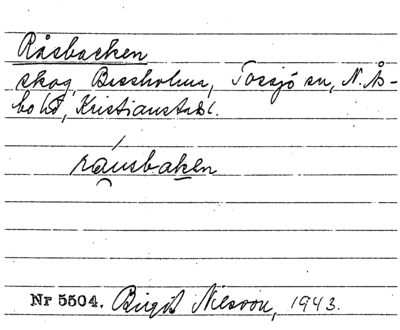 Råsbacken
skog, Bissholm, Tossjö sn, N. Ås-
bo hd, Kristianstad l.
ráusbaken
Nr 5504. Birgit Nilsson, 1943.